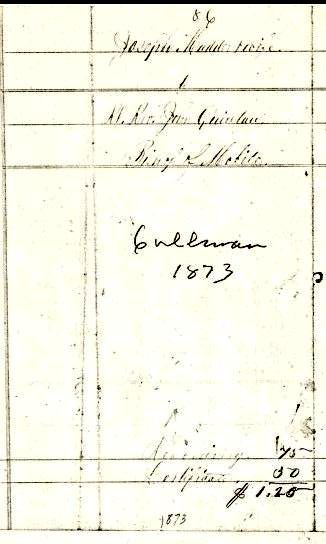 86
Joseph
to
Rt. Rev. John Quinlan
Bishop of Mobile
Cullman
1873
Recording 75
Certificate 50
$ 1.25
1873